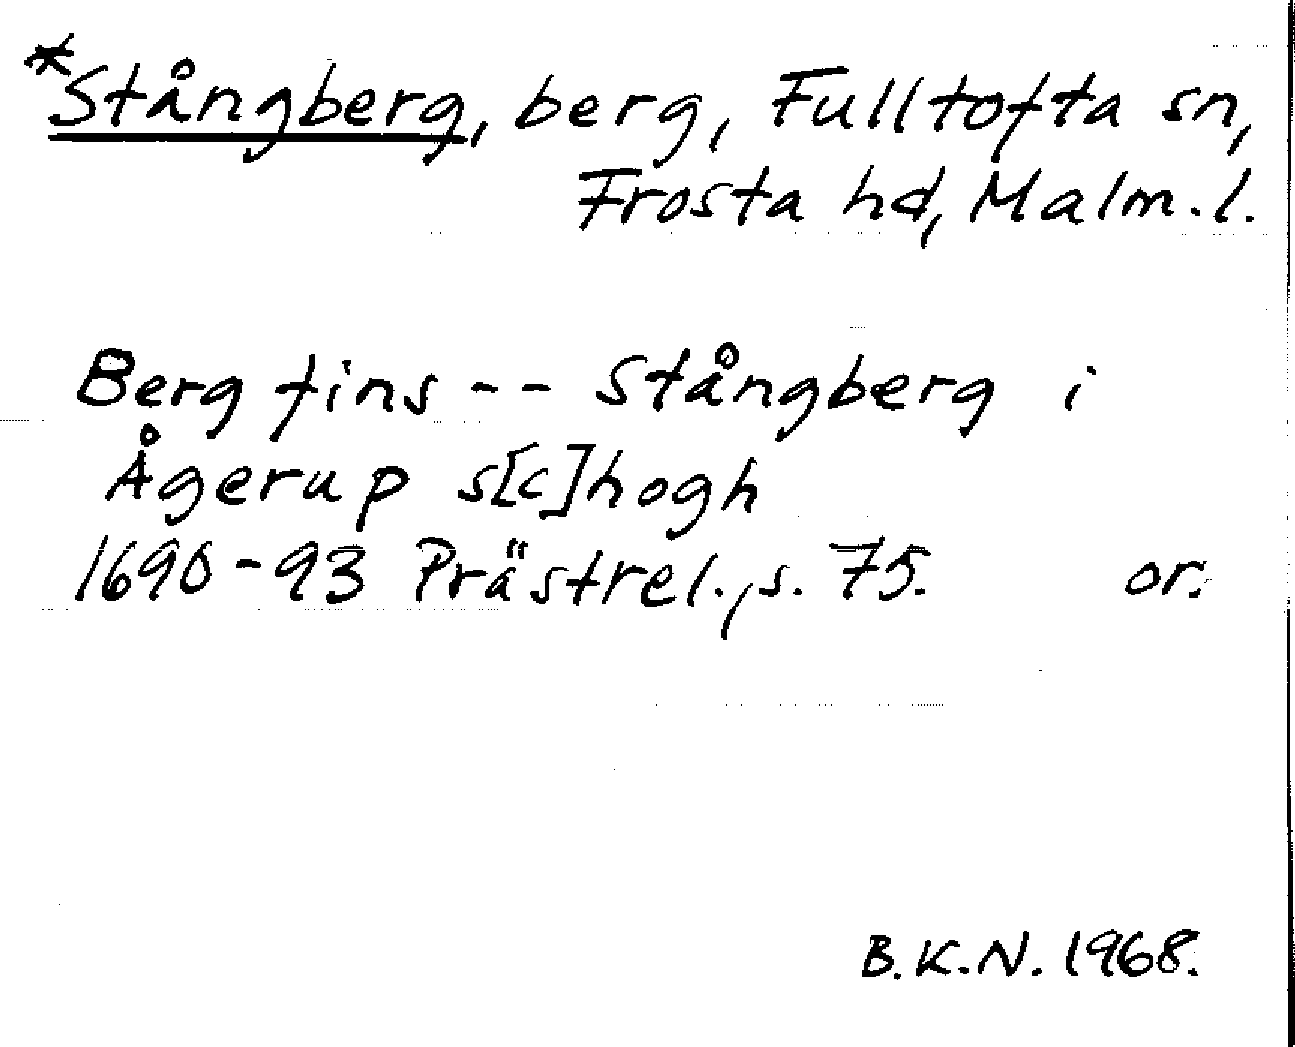 *Stångberg, berg, Fulltofta sn,
Frosta hd, Malm. l.
Berg fins -- Stångberg i
Ågerup s[c]hogh
1690-93 Prästrel., s. 75. or.
B.K.N. 1968.